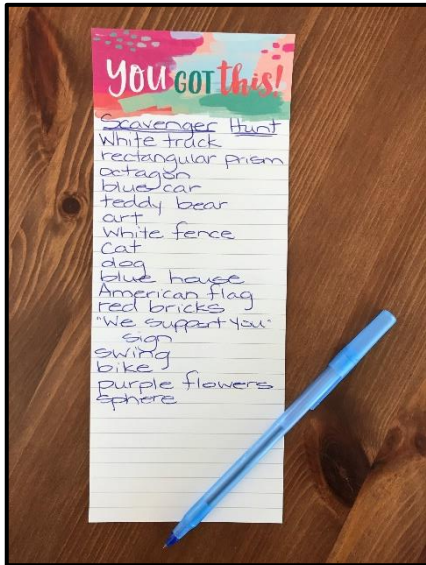 You GOT this!
Scavenger Hunt
White truck
rectangular prism
octagon
blue car
teddy bear
art
White fence
Cat
dog
blue house
American flag
red bricks
"We support You"
sign
swing
bike
purple flowers
sphere